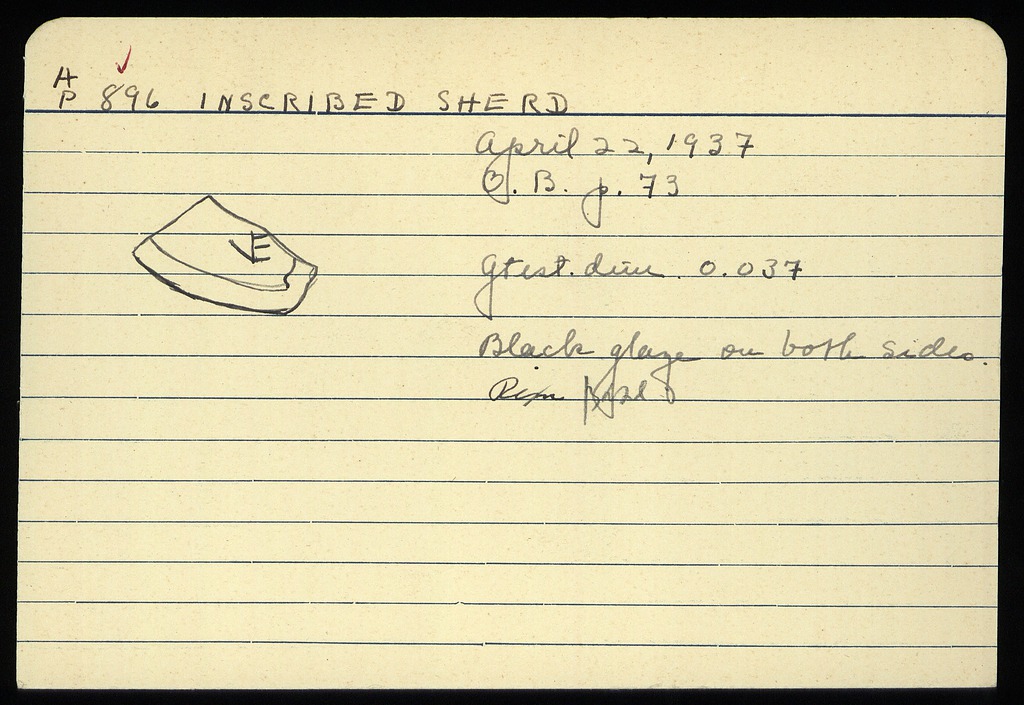 A
P 896 INSCRIBED SHERD
April 22, 1937
O. B. p. 73
VE
Gtest. dim. 0.037
Black glaze on both sides.
Rim